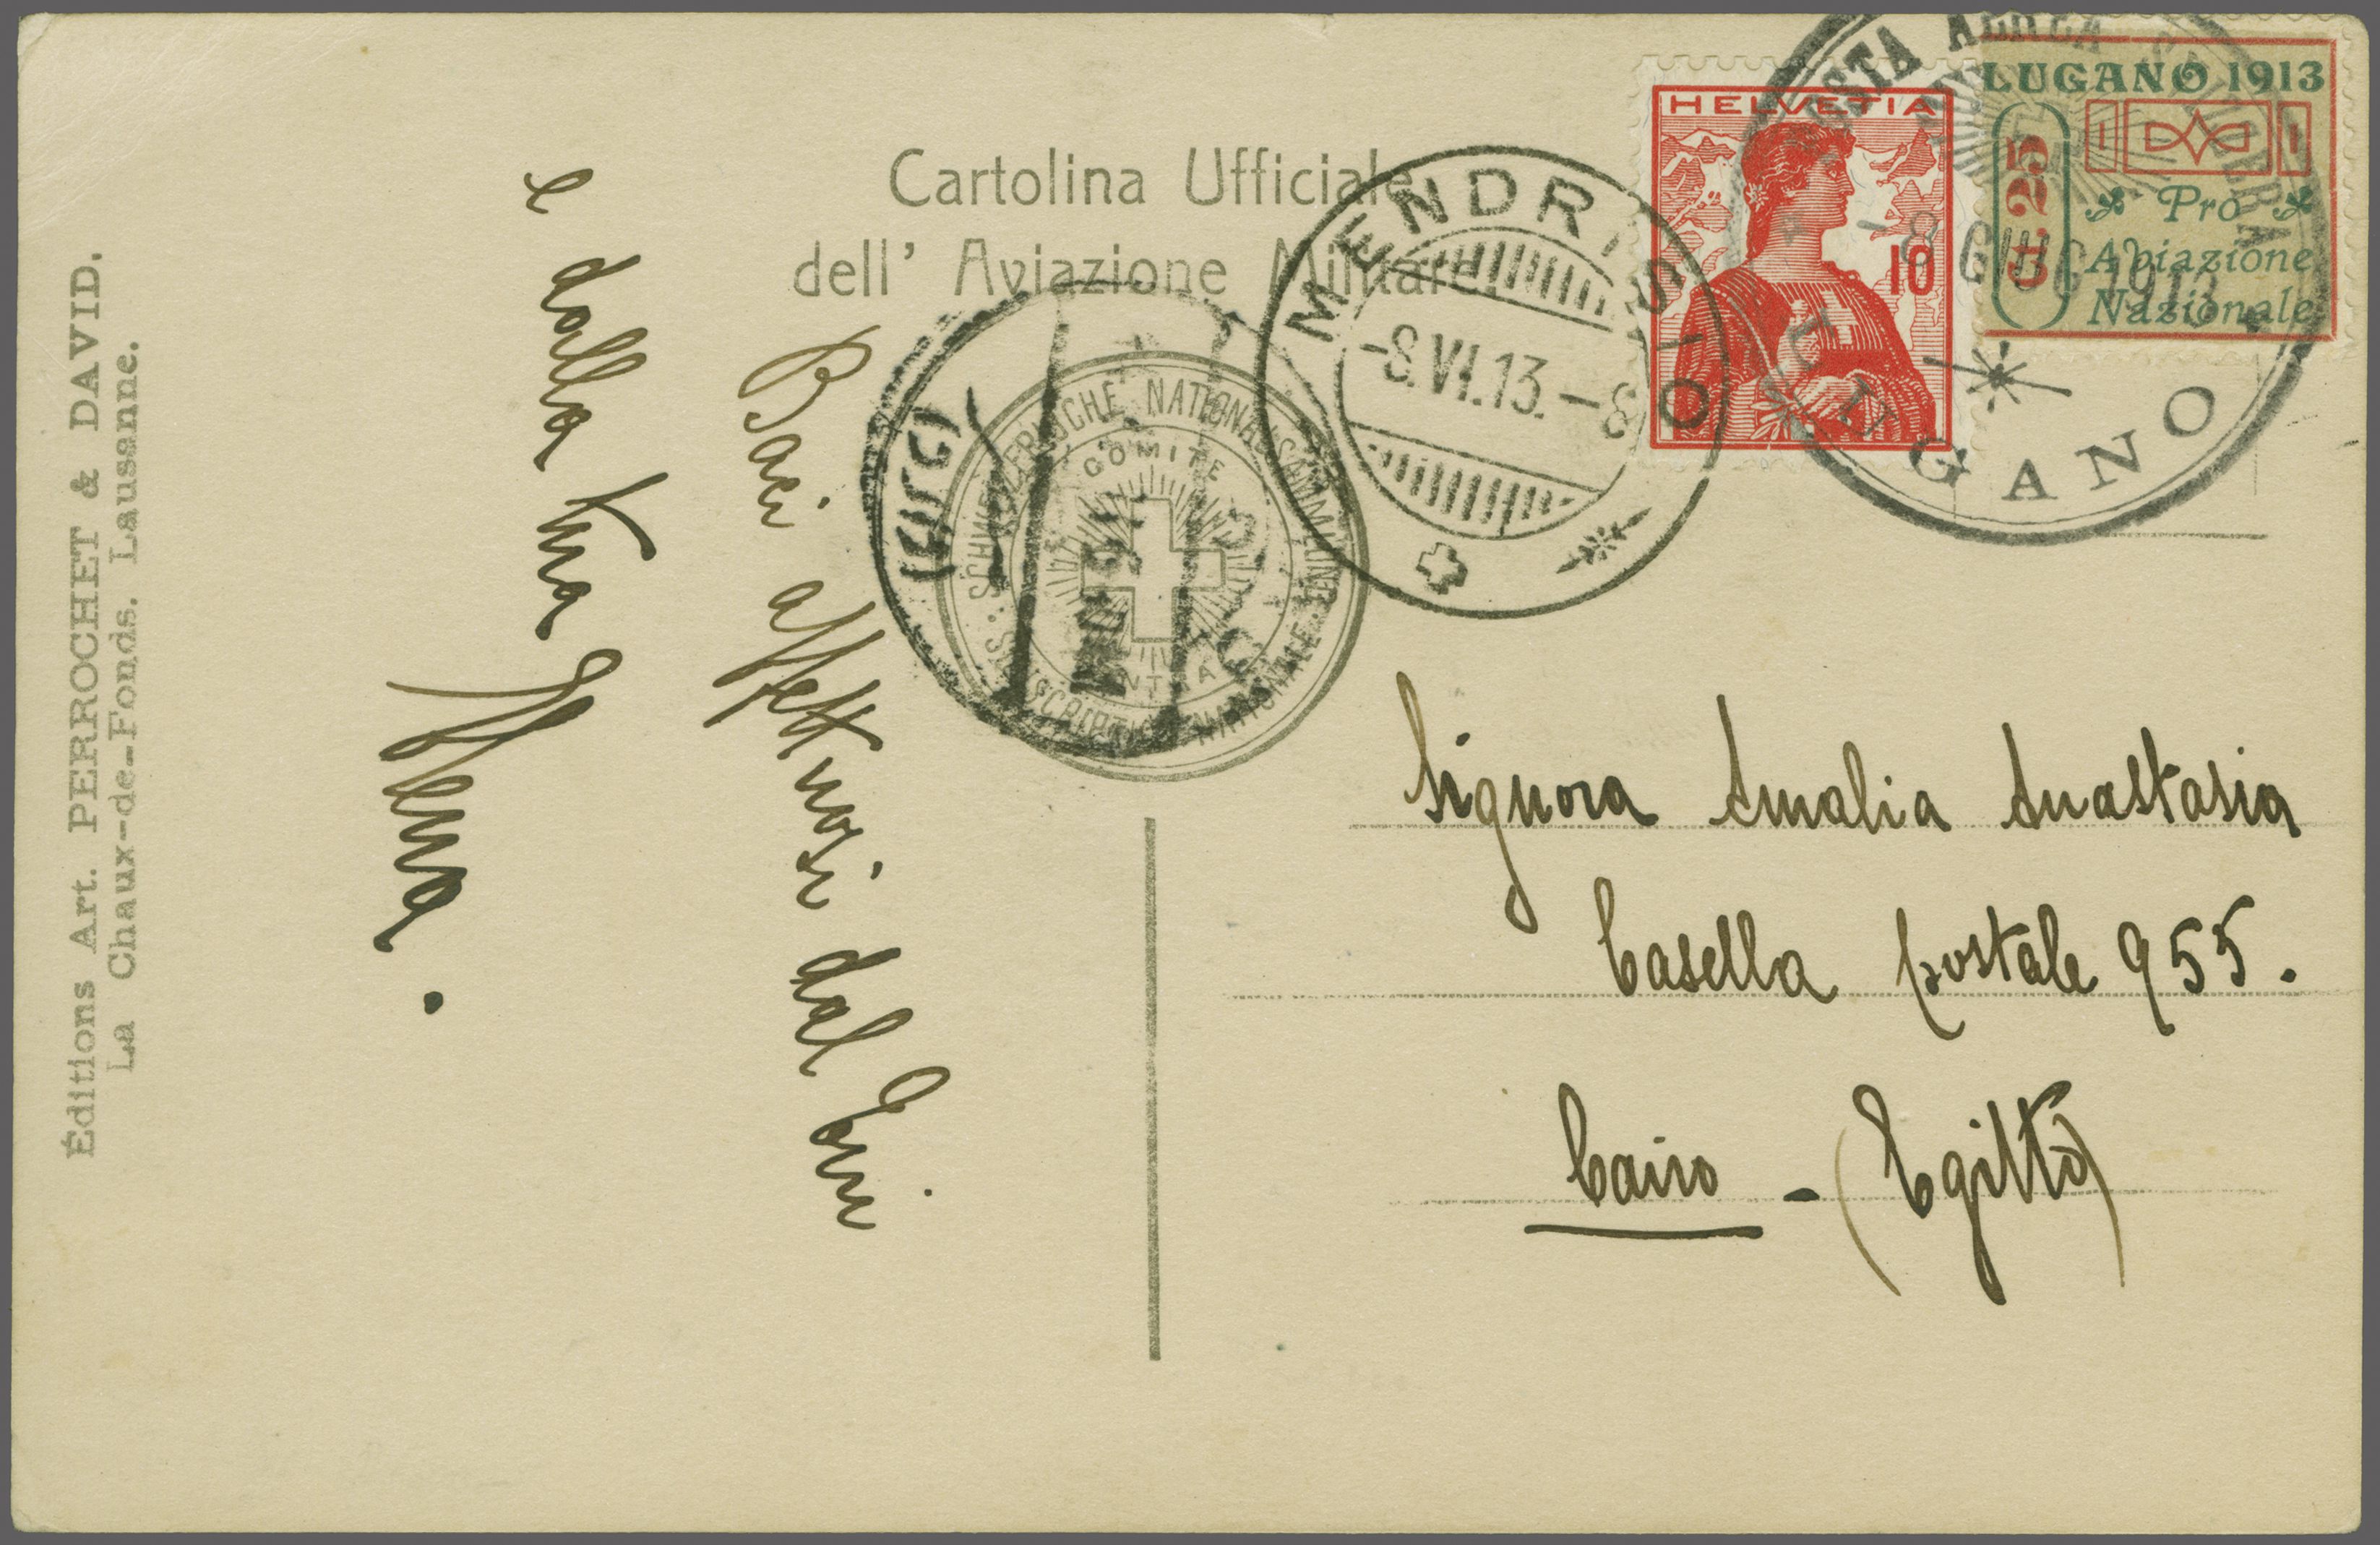 Cartolina Ufficiale
dell' Aviazione Militare
HELVETIA
10
LUGANO 1913
Ct. 25
Pro
Aviazione
Nazionale
POSTA AEREA SVIZZERA
- 8 GIUG 1913
LUGANO
MENDRISIO
-8.VI.13.-8
SCHWEIZERISCHE NATIONALSAMMLUNG
SOUSCRIPTION NATIONALE
COMITE
CENTRAL
CAIRO
Baci affettuosi dal
e dalla tua
Signora Amalia Anastasia
Casella postale 955.
Cairo - (Egitto)
Éditions Art. PERROCHET & DAVID.
La Chaux-de-Fonds. Lausanne.